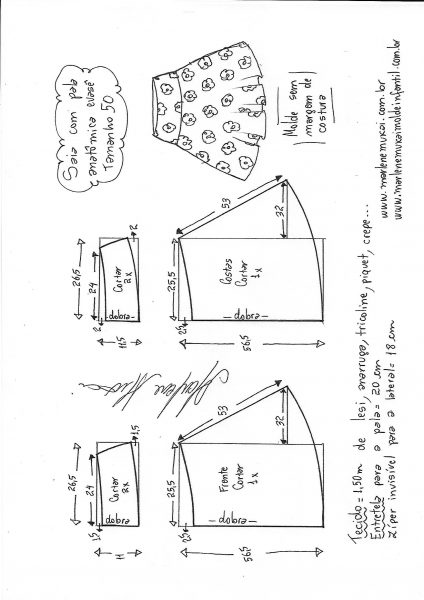 Saia com pala
anatômica evasê
Tamanho 50
Molde sem
margem de
costura
www.marlenemukai.com.br
www.marlenemukaimoldeinfantil.com.br
26,5
24
2
2
11,5
Cortar
2x
dobra
53
32
25,5
2,5
56,5
Costas
Cortar
1x
dobra
Marlene Mukai
26,5
24
1,5
1,5
11
Cortar
2x
dobra
53
32
25,5
2,5
56,5
Frente
Cortar
1x
dobra
Tecido = 1,50m de lesi, anarruga, tricoline, piquet, crepe...
Entretela para a pala = 20 cm
Zíper invisível para a lateral = 18 cm